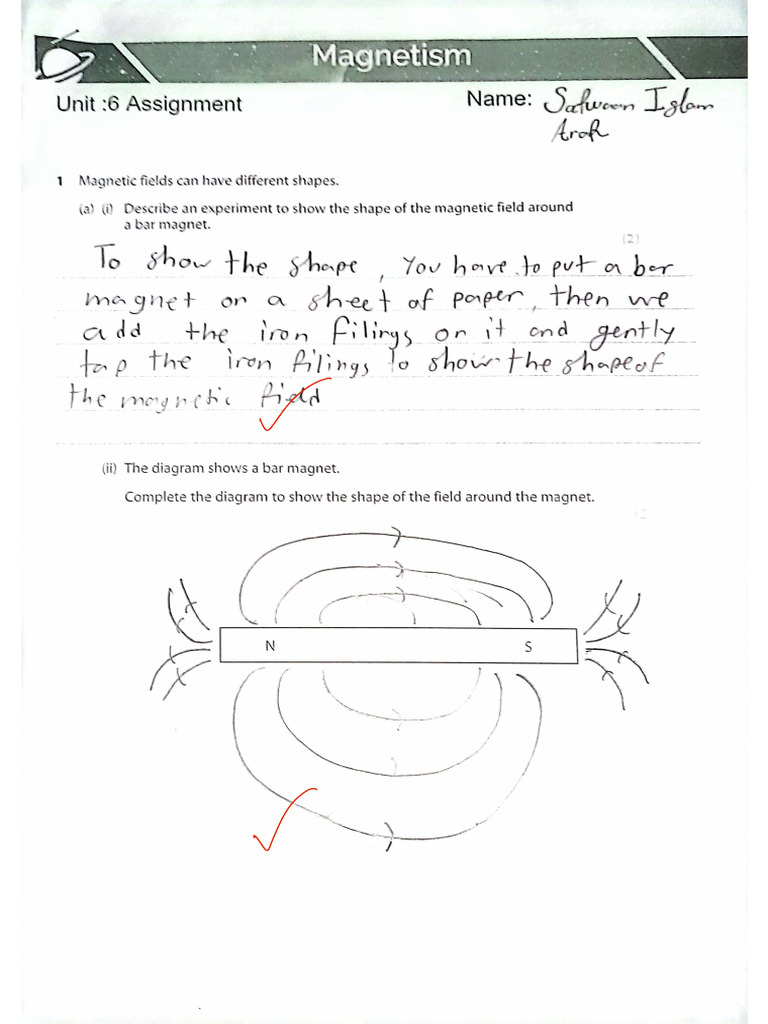 Magnetism
Unit :6 Assignment
Name: Safwaan Islam
Arafi
1 Magnetic fields can have different shapes.
(a) (i) Describe an experiment to show the shape of the magnetic field around
a bar magnet.
(2)
To show the shape, You have to put a bar
magnet on a sheet of paper, then we
add the iron filings on it and gently
tap the iron filings to show the shape of
the magnetic field
(ii) The diagram shows a bar magnet.
Complete the diagram to show the shape of the field around the magnet.
(2
N S